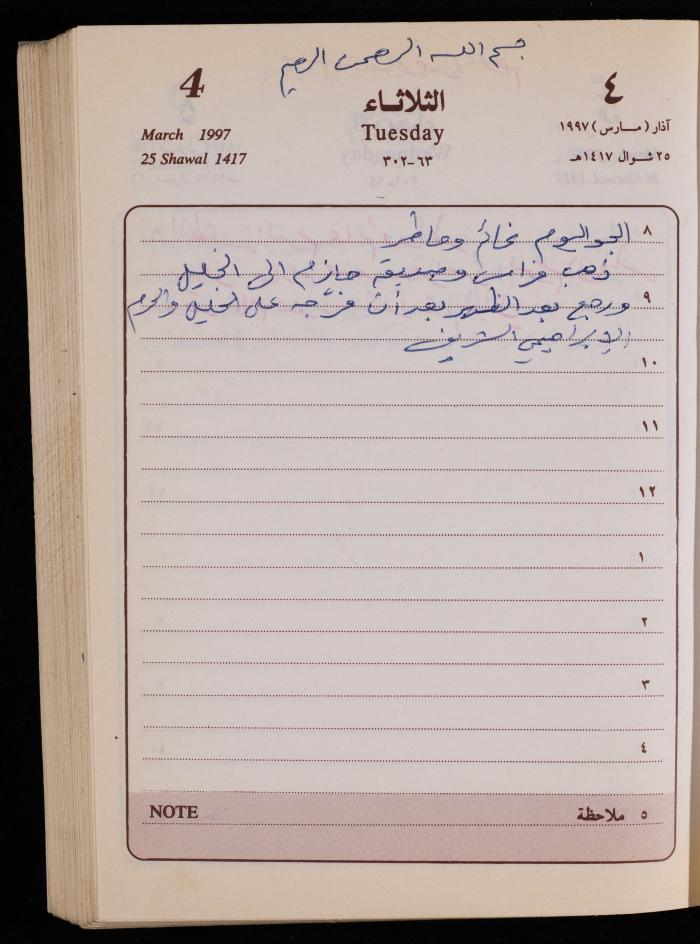 بسم الله الرحمن الرحيم
4
الثلاثاء
٤
March 1997
Tuesday
آذار (مارس) ١٩٩٧
25 Shawal 1417
٦٣-٣٠٢
٢٥ شوال ١٤١٧هـ
٨
الجو اليوم غائم وماطر
ذهب فراس وصديقه حازم الى الخليل
٩
ورجع بعد الظهر بعد أن فرّجه على الخليل والحرم
الابراهيمي الشريف
١٠
١١
١٢
١
٢
٣
٤
NOTE
٥ ملاحظة